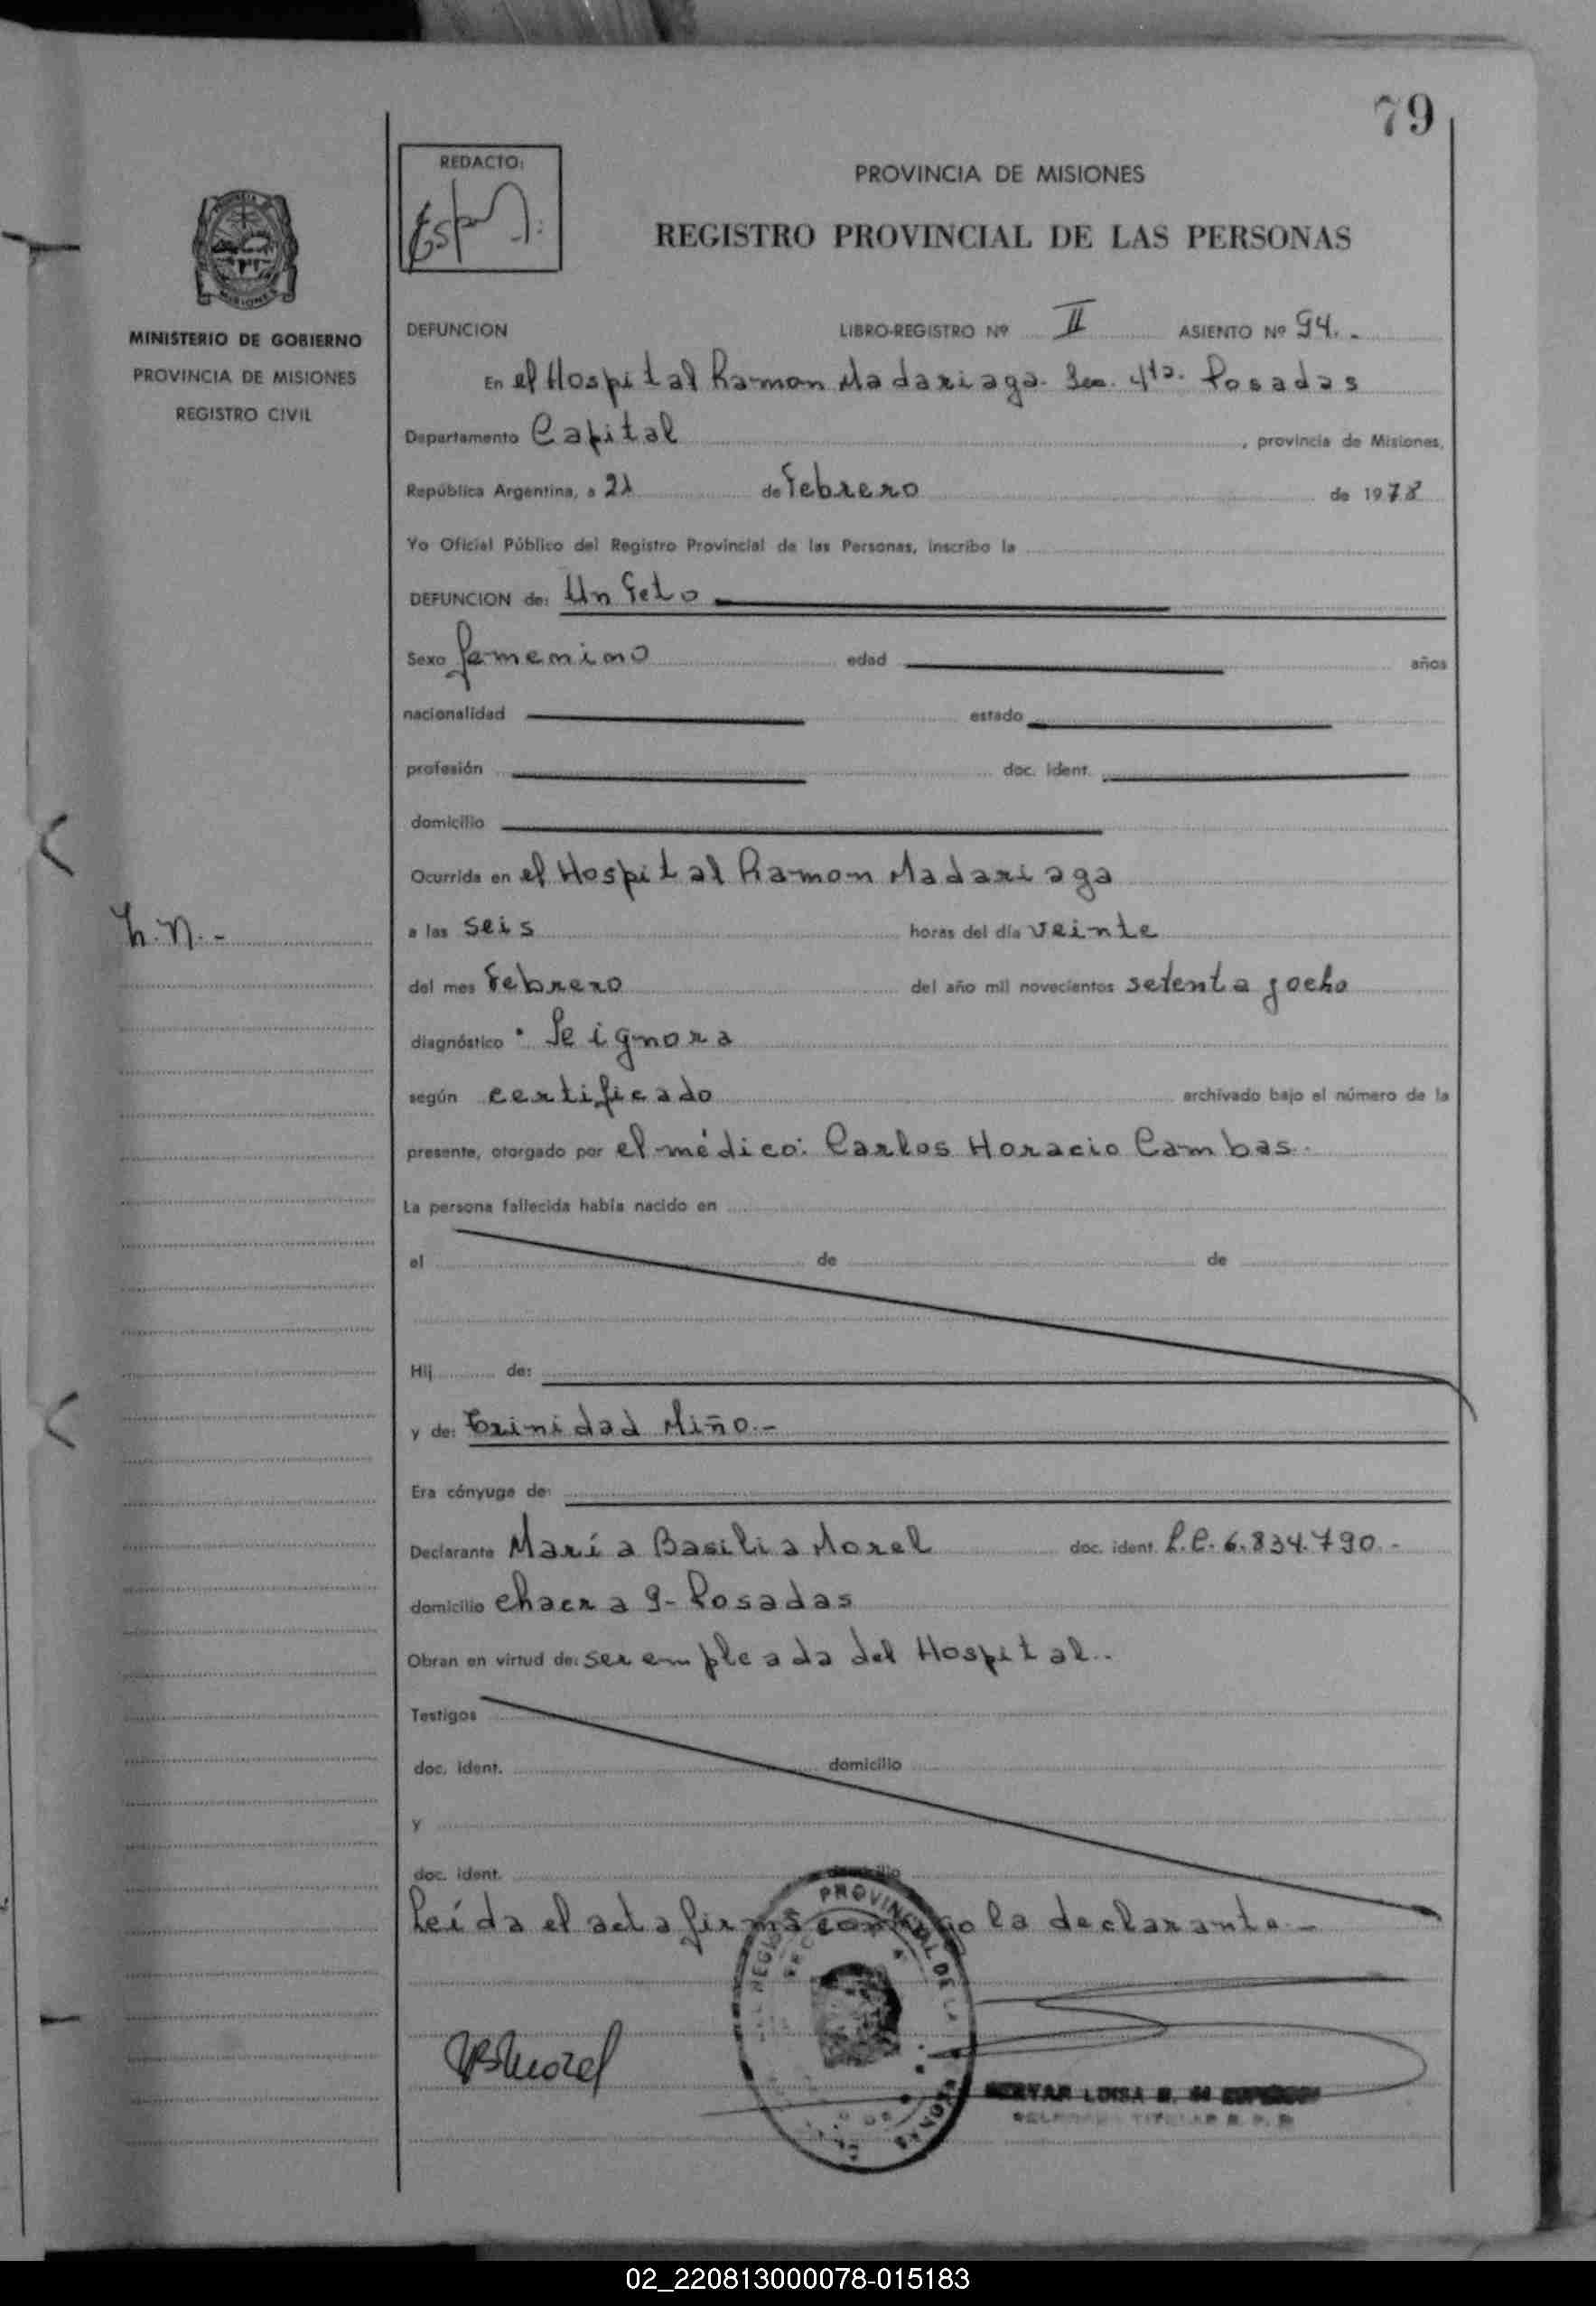 79
REDACTO:
PROVINCIA DE MISIONES
REGISTRO PROVINCIAL DE LAS PERSONAS
MISIONES
MINISTERIO DE GOBIERNO
PROVINCIA DE MISIONES
REGISTRO CIVIL
DEFUNCION LIBRO-REGISTRO Nº II ASIENTO Nº 94.-
En el Hospital Ramon Madariaga. Sec. 4ta. Posadas
Departamento Capital, provincia de Misiones,
República Argentina, a 21 de Febrero de 1978
Yo Oficial Público del Registro Provincial de las Personas, inscribo la
DEFUNCION de: Un Feto
Sexo femenino edad años
nacionalidad estado
profesión doc. ident.
domicilio
Ocurrida en el Hospital Ramon Madariaga
N.N.-
a las seis horas del día veinte
del mes Febrero del año mil novecientos setenta y ocho
diagnóstico: Se ignora
según certificado archivado bajo el número de la
presente, otorgado por el médico: Carlos Horacio Cambas.
La persona fallecida había nacido en
el de de
Hij de:
y de: Trinidad Miño.-
Era cónyuge de:
Declarante María Basilia Morel doc. ident. L.C. 6.834.790.-
domicilio chacra 9- Posadas
Obran en virtud de: ser empleada del Hospital.
Testigos
doc. ident. domicilio
y
doc. ident. domicilio
Leída el acta firma conmigo la declarante.-
PROVINCIAL DE LA
MBMorel
LUISA
TITULAR
02_220813000078-015183